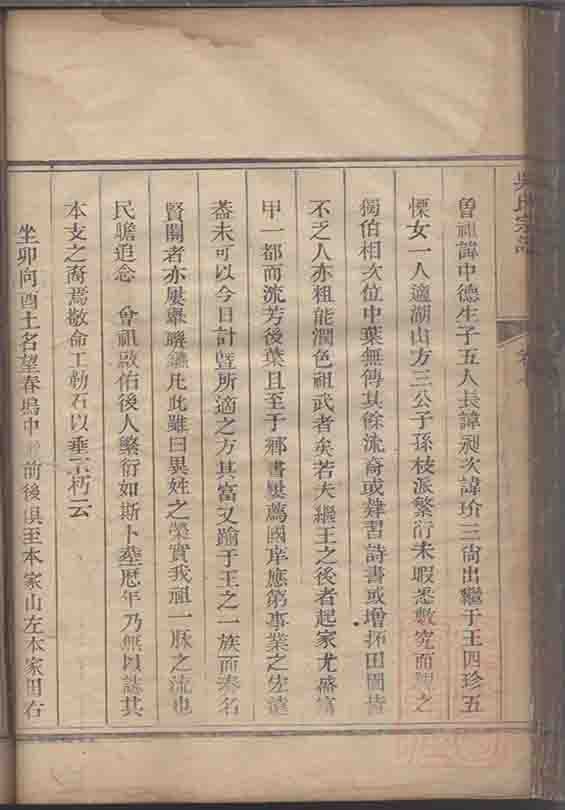 吳氏宗譜
卷
魯祖諱中德生子五人長諱昶次諱玠三尚出繼于王四珍五
慄女一人適湖山方三公子孫枝派繁衍未暇悉數究而之
獨伯相次位中葉無傳其餘流裔或肄習詩書或增拓田園皆
不乏人亦粗能潤色祖武者矣若夫繼王之後者起家尤盛富
甲一都而流芳後葉且至于鄉書屢薦國庠應第事業之佐達
葢未可以今日計暨所適之方其富又踰于王之一族而奏名
賢關者亦屢舉聯鑣凡此雖曰異姓之榮實我祖一脉之流也
民瞻追念 曾祖啟佑後人繁衍如斯卜塟歷年乃無以誌其
本支之裔焉敬命工勒石以垂不朽云
坐卯向酉土名望春塢中 前後俱至本家山左本家田右